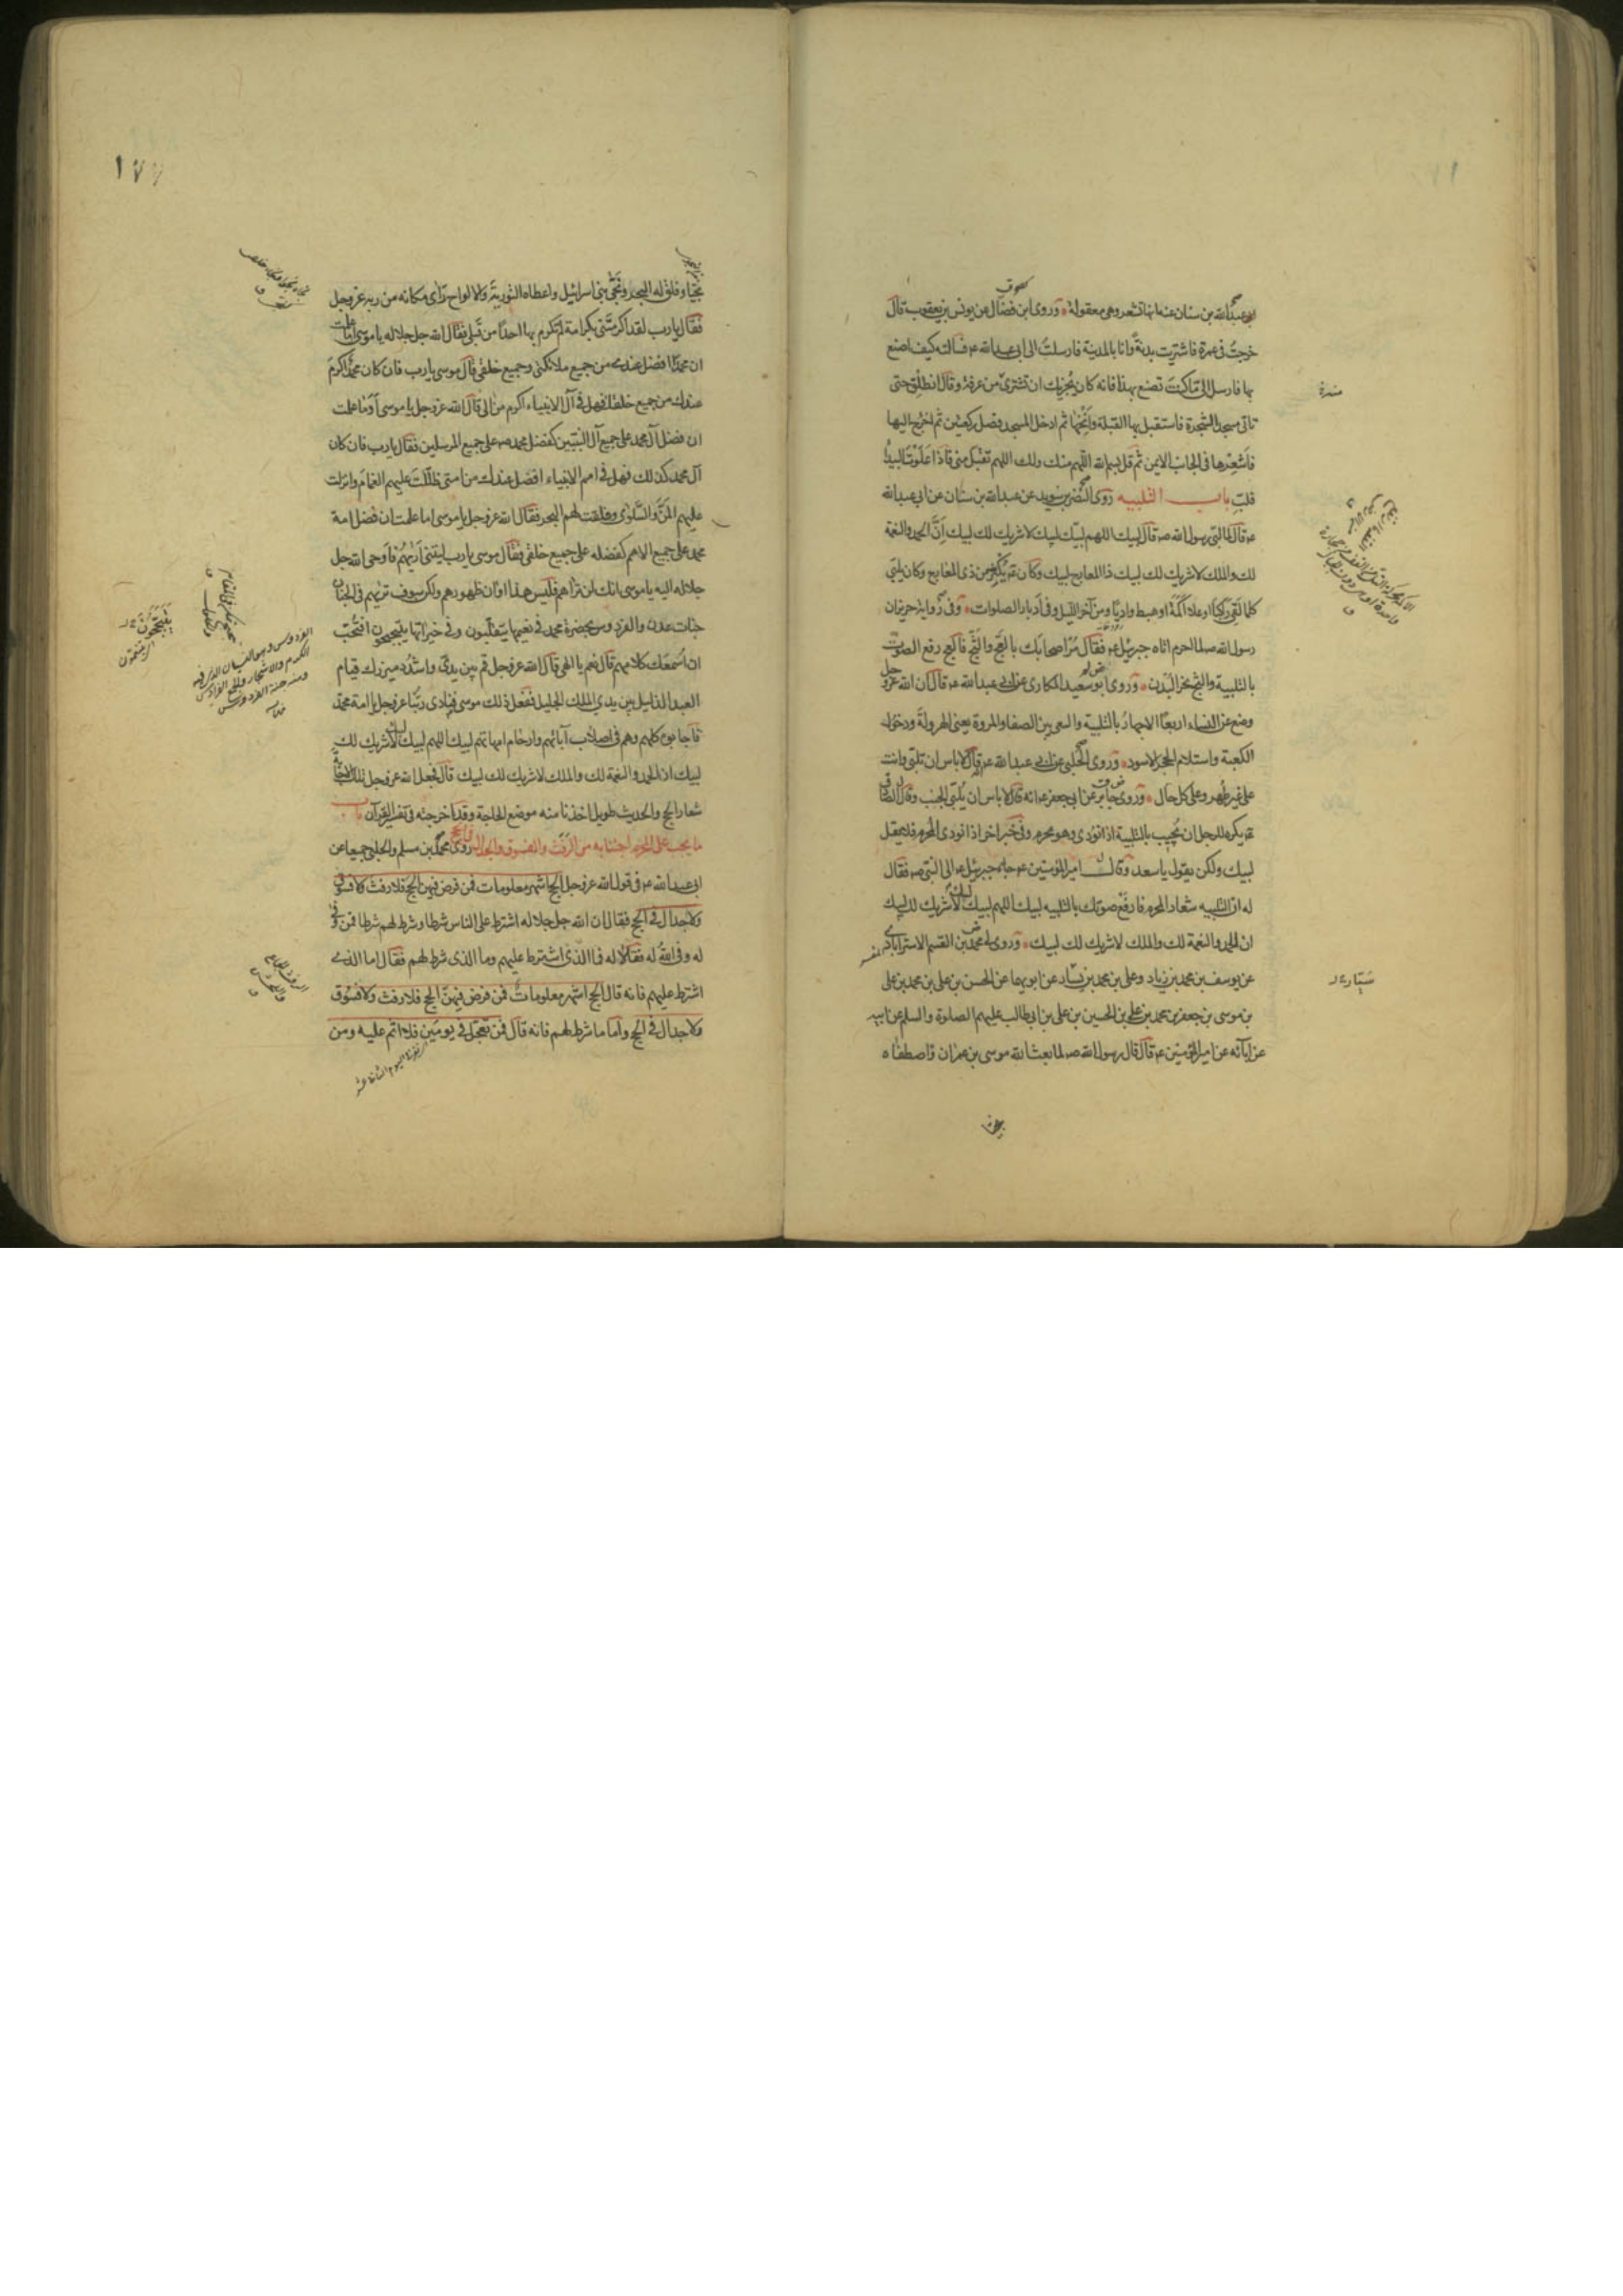 عبدالله بن سنان عنه انها تشعر وهى معقولة وروى ابن فضال عن يونس بن يعقوب قال
خرجت فى عمرة فاشتريت بدنة وانا بالمدينة فارسلت الى ابى عبدالله عم فسالته كيف اصنع
بها فارسل الى ما كنت تصنع بهذا فانه كان يجزيك ان تشترى من عرفة وقال انطلق حتى
تاتى مسجد الشجرة فاستقبل بها القبلة وانخها ثم ادخل المسجد فصل ركعتين ثم اخرج اليها
فاشعرها فى الجانب الايمن ثم قل بسم الله اللهم منك ولك اللهم تقبل منى فاذا علوت البيداء
فلب باب التلبيه روى النضر بن سويد عن عبدالله بن سنان عن ابى عبدالله
عم قال لما لبى رسول الله صم قال لبيك اللهم لبيك لبيك لا شريك لك لبيك ان الحمد والنعمة
لك والملك لا شريك لك لبيك ذا المعارج لبيك وكان عم يكثر من ذى المعارج وكان يلبى
كلما لقى راكبا او علا اكمة او هبط واديا ومن آخر الليل وفى ادبار الصلوات وفى رواية حريز ان
رسول الله صم لما احرم اتاه جبرئيل عم فقال مر اصحابك بالعج والثج فالعج رفع الصوت
بالتلبية والثج نحر البدن وروى ابو سعيد المكارى عن ابى عبدالله عم قال ان الله عز وجل
وضع عن النساء اربعا الاجهار بالتلبية والسعى بين الصفا والمروة يعنى الهرولة ودخول
الكعبة واستلام الحجر الاسود وروى الحلبى عن ابى عبدالله عم قال لا باس ان تلبى وانت
على غير طهر وعلى كل حال وروى جابر عن ابى جعفر عم انه قال لا باس ان يلبى الجنب وقال الصادق
عم يكره للرجل ان يجيب بالتلبية اذا نودى وهو محرم وفى خبر اخر اذا نودى المحرم فلا يقل
لبيك ولكن يقول يا سعد وقال امير المؤمنين عم جاء جبرئيل عم الى النبى صم فقال
له ان التلبيه شعار المحرم فارفع صوتك بالتلبيه لبيك اللهم لبيك لبيك لا شريك لك لبيك
ان الحمد والنعمة لك والملك لا شريك لك لبيك وروى لى محمد بن القسم الاسترابادى المفسر
عن يوسف بن محمد بن زياد وعلى بن محمد بن يسار عن ابويهما عن الحسن بن على بن محمد بن على
بن موسى بن جعفر بن محمد بن على بن الحسين بن على بن ابى طالب عليهم الصلوة والسلم عن ابيه
عن آبائه عن امير المؤمنين عم قال قال رسول الله صم لما بعث الله موسى بن عمران واصطفاه
نجيا
سيار
١٧٧
نجيا وفلق له البحر ونجى بنى اسرائيل واعطاه التورية والالواح راى مكانه من ربه عز وجل
فقال يارب لقد اكرمتنى بكرامة لم تكرم بها احدا من قبلى فقال الله جل جلاله يا موسى اما علمت
ان محمدا افضل عندى من جميع ملائكتى وجميع خلقى قال موسى يارب فان كان محمد اكرم
عندك من جميع خلقك فهل فى آل الانبياء اكرم من الى قال الله عز وجل يا موسى اوما علمت
ان فضل آل محمد على جميع آل النبيين كفضل محمد صم على جميع المرسلين فقال يارب فان كان
آل محمد كذلك فهل فى امم الانبياء افضل عندك من امتى ظللت عليهم الغمام وانزلت
عليهم المن والسلوى وفلقت لهم البحر فقال الله عز وجل يا موسى اما علمت ان فضل امة
محمد على جميع الامم كفضله على جميع خلقى فقال موسى يارب ليتنى اريهم فاوحى الله جل
جلاله اليه يا موسى انك لن تراهم فليس هذا اوان ظهورهم ولكن سوف تريهم فى الجنان
جنات عدن والفردوس بحضرة محمد فى نعيمها يتقلبون وفى خيراتها يتبجحون افتحب
ان اسمعك كلامهم قال نعم يا الهى قال الله عز وجل قم بين يدى واشدد ميزرك قيام
العبد الذليل بين يدى الملك الجليل ففعل ذلك موسى فنادى ربنا عز وجل يا امة محمد
فاجابوه كلهم وهم فى اصلاب آبائهم وارحام امهاتهم لبيك اللهم لبيك لبيك لا شريك لك
لبيك ان الحمد والنعمة لك والملك لا شريك لك لبيك قال فجعل الله عز وجل تلك الاجابة
شعار الحج والحديث طويل اخذنا منه موضع الحاجة وقد اخرجته فى تفسير القرآن باب
ما يجب على المحرم اجتنابه من الرفث والفسوق والجدال فى الحج روى محمد بن مسلم والحلبى جميعا عن
ابى عبدالله عم فى قول الله عز وجل الحج اشهر معلومات فمن فرض فيهن الحج فلا رفث ولا فسوق
ولا جدال فى الحج فقال ان الله جل جلاله اشترط على الناس شرطا وشرط لهم شرطا فمن وفى
له وفى الله له فقالا له فما الذى اشترط عليهم وما الذى شرط لهم فقال اما الذى
اشترط عليهم فانه قال الحج اشهر معلومات فمن فرض فيهن الحج فلا رفث ولا فسوق
ولا جدال فى الحج واما ما شرط لهم فانه قال فمن تعجل فى يومين فلا اثم عليه ومن